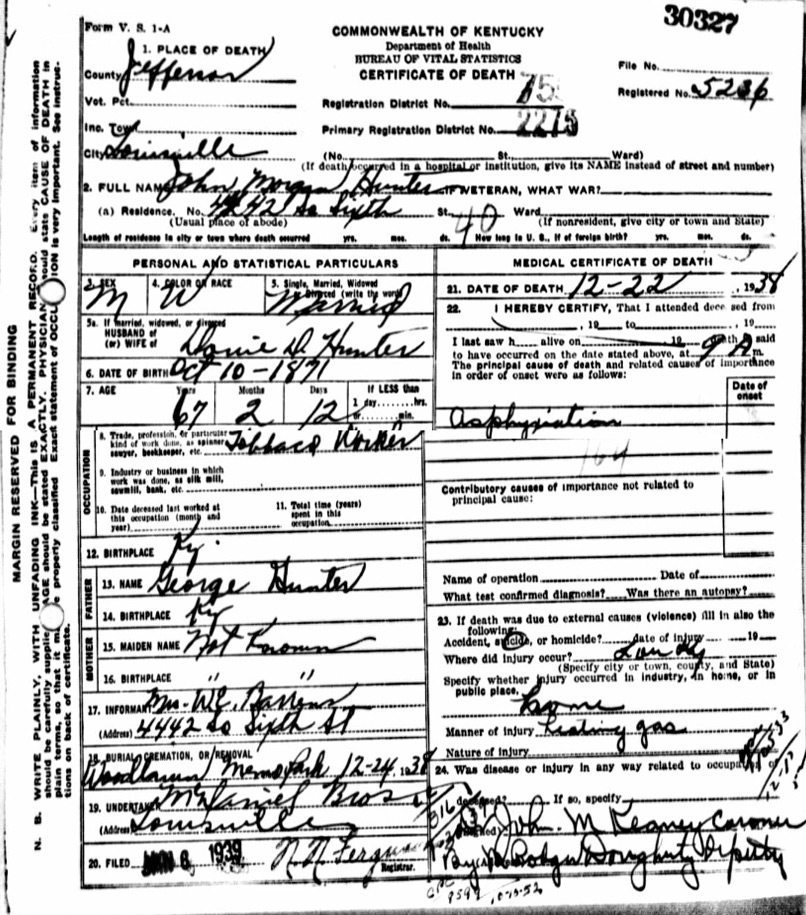 30327
Form V. S. 1-A
COMMONWEALTH OF KENTUCKY
Department of Health
BUREAU OF VITAL STATISTICS
CERTIFICATE OF DEATH
1. PLACE OF DEATH
County Jefferson
Vot. Pct.
Inc. Town
City Louisville
File No.
Registered No. 5236
Registration District No. 755
Primary Registration District No. 2275
(No. St., Ward)
(If death occurred in a hospital or institution, give its NAME instead of street and number)
2. FULL NAME John Morgan Hunter IF VETERAN, WHAT WAR?
(a) Residence. No. 4242 So Sixth St. 40 Ward
(Usual place of abode) (If nonresident, give city or town and State)
Length of residence in city or town where death occurred yrs. mos. ds. How long in U. S., if of foreign birth? yrs. mos. ds.
PERSONAL AND STATISTICAL PARTICULARS
3. SEX M
4. COLOR OR RACE W
5. Single, Married, Widowed or Divorced (write the word) Married
5a. If married, widowed, or divorced
HUSBAND of
(or) WIFE of D. Hunter
6. DATE OF BIRTH Oct 10-1871
7. AGE Years Months Days If LESS than
67 2 12 1 day hrs.
or min.
OCCUPATION
8. Trade, profession, or particular
kind of work done, as spinner,
sawyer, bookkeeper, etc. Tobbaco Worker
9. Industry or business in which
work was done, as silk mill,
sawmill, bank, etc.
10. Date deceased last worked at
this occupation (month and
year)
11. Total time (years)
spent in this
occupation
12. BIRTHPLACE Ky.
FATHER
13. NAME George Hunter
14. BIRTHPLACE Ky
MOTHER
15. MAIDEN NAME Not Known
16. BIRTHPLACE " "
17. INFORMANT Mrs. W.E.
(Address) 4442 So Sixth St
18. BURIAL, CREMATION, OR REMOVAL
Woodlawn Memo Park 12-24, 1938
19. UNDERTAKER McDaniel Bros
(Address) Louisville
20. FILED JAN 6 1939 N. N. Fergus
Registrar.
MEDICAL CERTIFICATE OF DEATH
21. DATE OF DEATH 12-22, 1938
22. I HEREBY CERTIFY, That I attended deceased from
, 19 to , 19
I last saw h alive on 19 death is said
to have occurred on the date stated above, at 9 A m.
The principal cause of death and related causes of importance
in order of onset were as follows:
Date of
onset
Asphyxiation
164
Contributory causes of importance not related to
principal cause:
Name of operation Date of
What test confirmed diagnosis? Was there an autopsy?
23. If death was due to external causes (violence) fill in also the
following:
Accident, suicide, or homicide? date of injury 19
Where did injury occur? Lou Ky
(Specify city or town, county, and State)
Specify whether injury occurred in industry, in home, or in
public place.
home
Manner of injury gas
Nature of injury
24. Was disease or injury in any way related to occupation of
deceased? If so, specify
(Signed) John M Keaney Coroner
By Dougherty Deputy
10-15-52
MARGIN RESERVED FOR BINDING
N. B. WRITE PLAINLY, WITH UNFADING INK—This is A PERMANENT RECORD. Every item of information
should be carefully supplied. AGE should be stated EXACTLY. PHYSICIANS should state CAUSE OF DEATH in
plain terms, so that it may be properly classified. Exact statement of OCCUPATION is very important. See instruc-
tions on back of certificate.